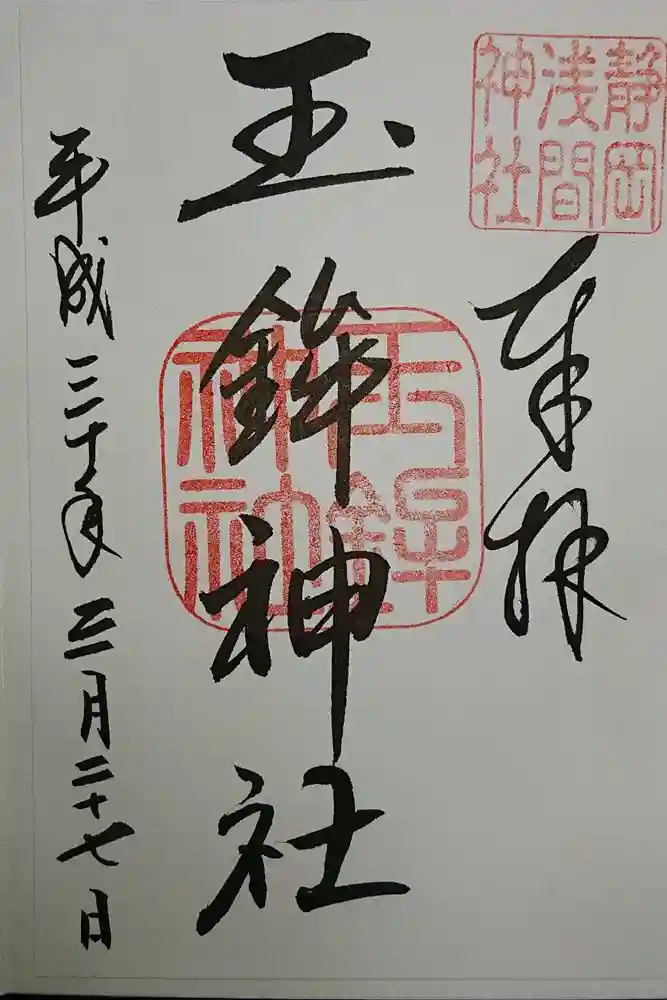 静岡
浅間
神社
奉拝
玉鉾神社
玉鉾
神社
平成三十年三月二十七日